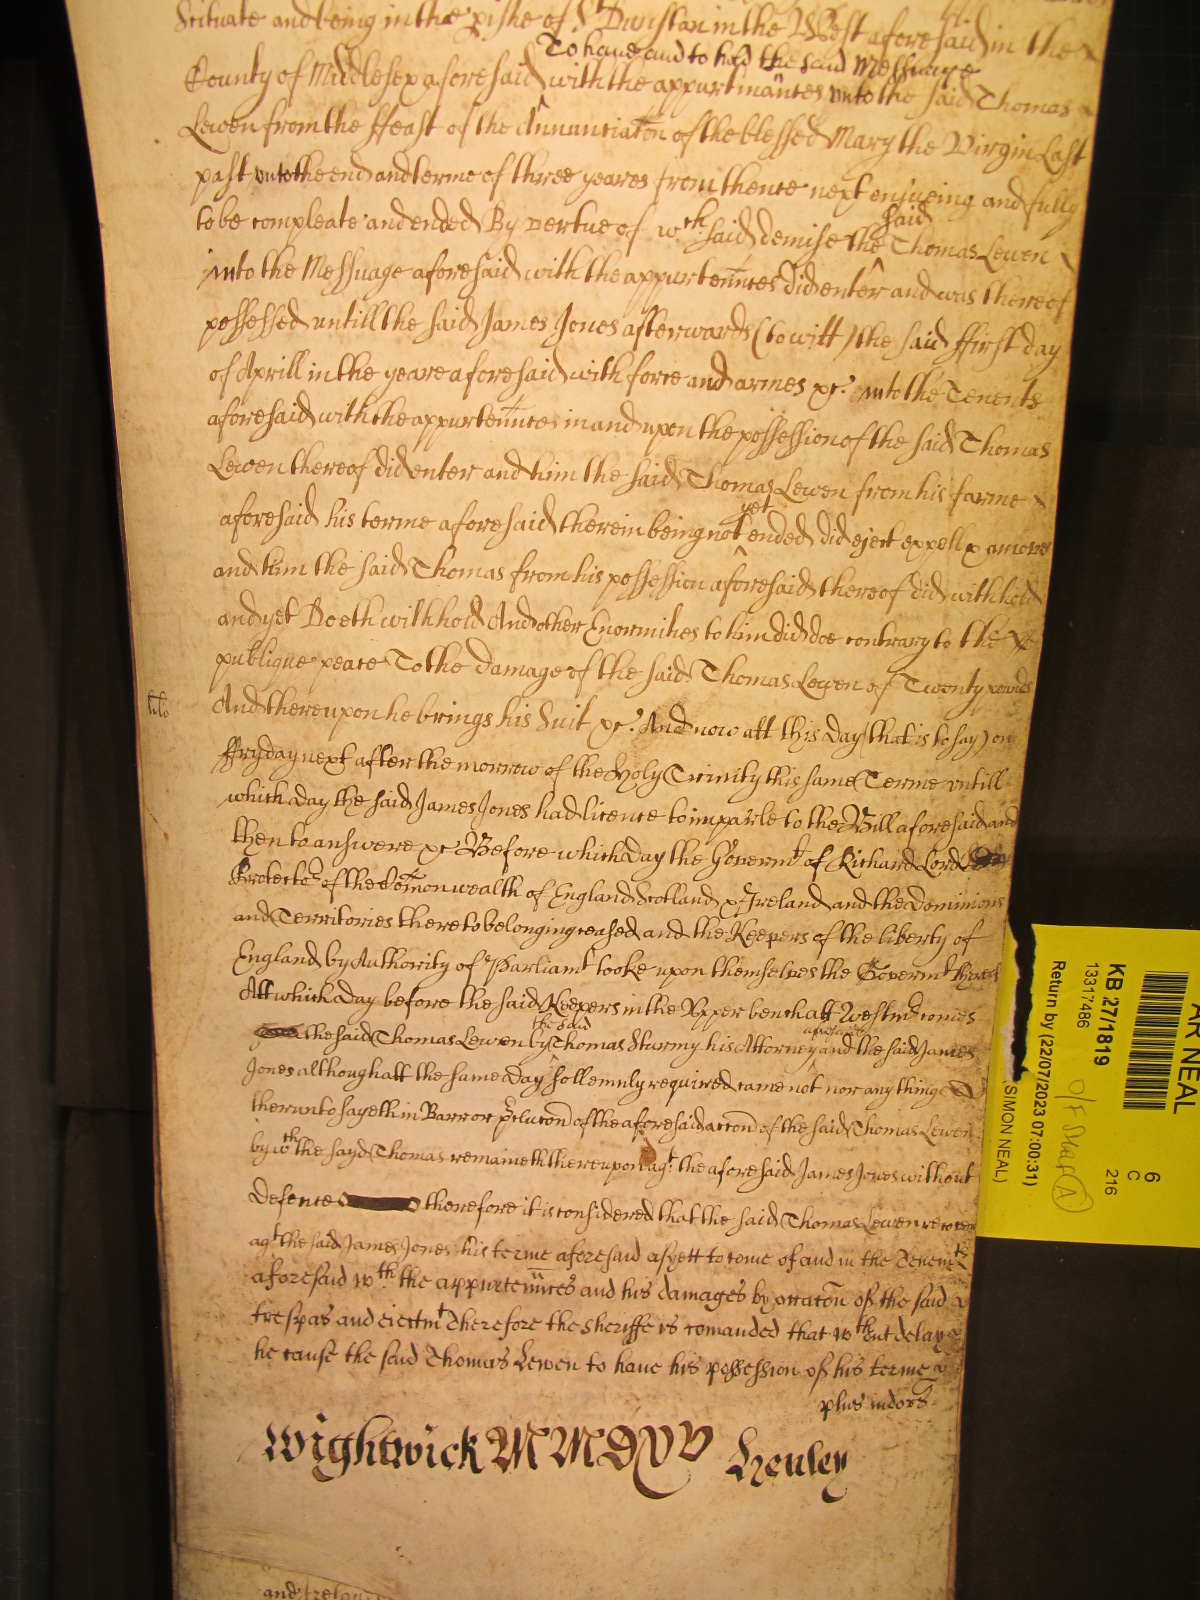 Scituate and being in the pishe of St Dunstan in the West aforesaid in the
To have and to hold the said Messuage
County of Middlesex aforesaid with the appurtinãntes unto the said Thomas
Lewen from the ffeast of the Annunciatõn of the blessed Mary the Virgin Last
past unto the end and terme of three yeares from thence next ensueing and fully
to be compleate and ended By vertue of wch said demise the said Thomas Lewen
into the Messuage aforesaid with the appurtennces did enter and was thereof
possessed untill the said James Jones afterwards (to witt) the said ffirst day
of Aprill in the yeare aforesaid with force and armes &c. into the Tenemts
aforesaid with the appurtennces in and upon the possession of the said Thomas
Lewen thereof did enter and him the said Thomas Lewen from his farme
aforesaid his terme aforesaid therein being not yet ended did eject expell & amove
and him the said Thomas from his possession aforesaid thereof did withhold
and yet Doeth withhold And other Enormities to him did doe contrary to the
publique peace To the damage of the said Thomas Lewen of Twenty pounds
And thereupon he brings his Suit &c. And now att this day (that is to say) on
ffryday next after the morrow of the Holy Trinity this same Terme untill
which day the said James Jones had licence to imparle to the Bill aforesaid and
then to answere &c Before which day the Governmt of Richard Lord
Protector of the Com̃onwealth of England Scotland & Ireland and the Dominions
and Territories thereto belonging ceased and the Keepers of the liberty of
England by Authority of Parliamt tooke upon themselves the Governmt thereof
Att which day before the said Keepers in the Upper bench att Westmr comes
the said Thomas Lewen by the said Thomas Sturmy his Attorney aforesaid and the said James
Jones although att the same day sollemnly required came not nor any thing
therunto sayeth in Barr or pclucon of the aforesaid accon of the said Thomas Lewen
by wth the sayd Thomas remaineth thereupon agt the aforesaid James Jones without
Defence therefore it is considered that the said Thomas Lewen recover
agt the said James Jones his terme aforesaid as yett to come of and in the Tenemts
aforesaid wth the appurtennces and his damages by occatõn of the said
trespas and eiectmt Therefore the Sheriffe is comanded that wthout delay
he cause the said Thomas Lewen to have his possession of his terme
plus indors
Wightwick MMDXV Henley
and Ireland
AR NEAL
KB 27/1819
13317486
Return by (22/07/2023 07:00:31)
(SIMON NEAL)
6
C
216
O/F Shelf A